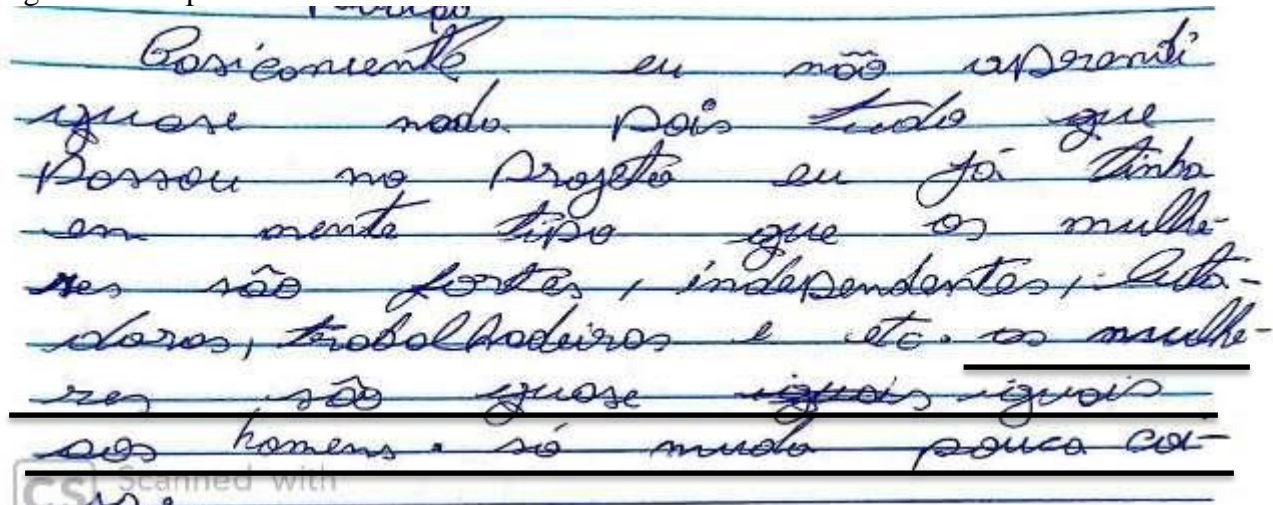 Basicamente eu não aprendi
quase nada pois tudo que
passou no projeto eu já tinha
em mente tipo que as mulhe-
res são fortes, independentes, luta-
doras, trabalhadeiras e etc. as mulhe-
res são quase iguais
aos homens. só muda pouca coi-
CS Scanned with
sa.